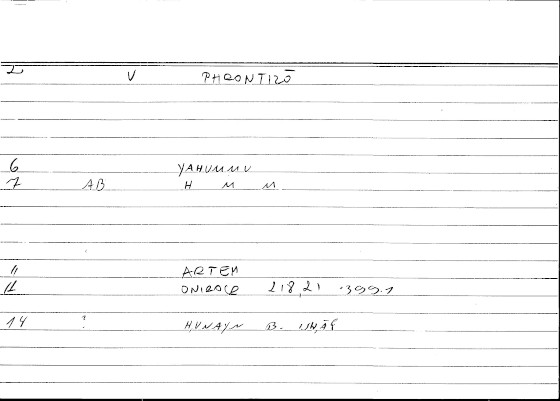 2 V PHRONTIZŌ
6 YAHUMMU
7 AB H M M
11 ARTEM
12 ONIROCR 218,21 -399.1
14 ? HUNAYN B.